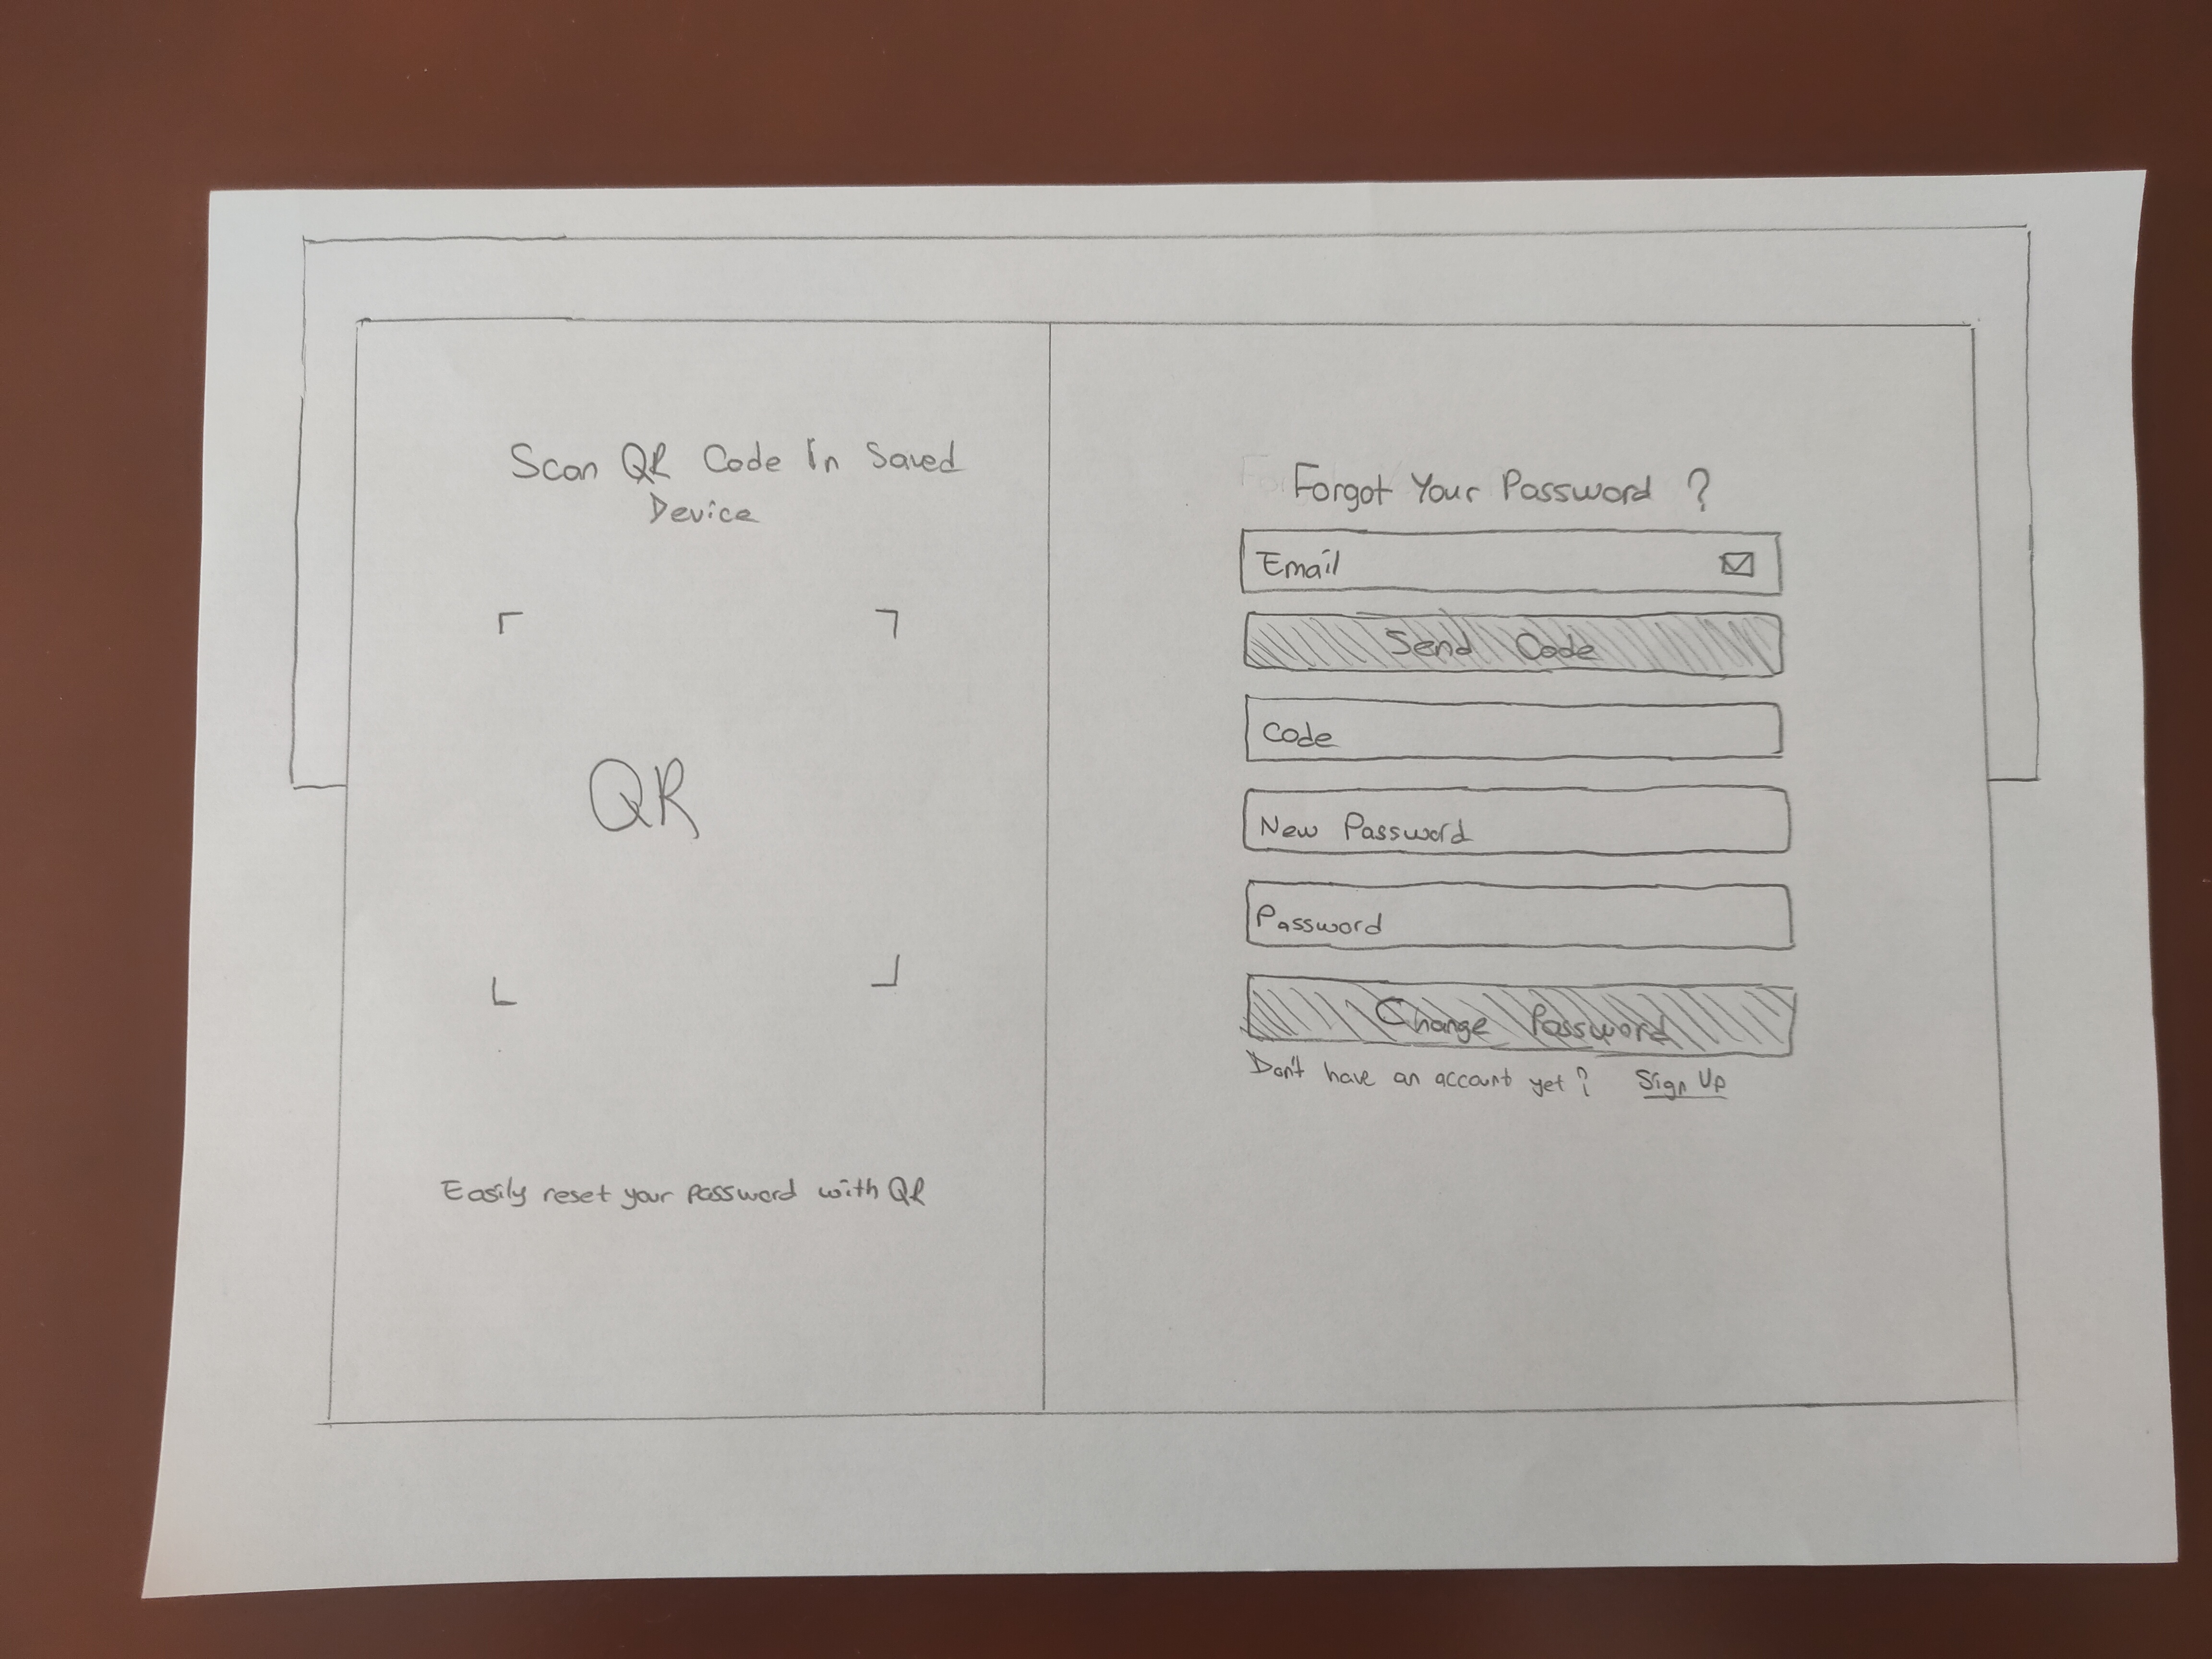 Scan QR Code In Saved
Device
QR
Easily reset your password with QR
Forgot Your Password ?
Email
Send Code
Code
New Password
Password
Change Password
Don't have an account yet? Sign Up